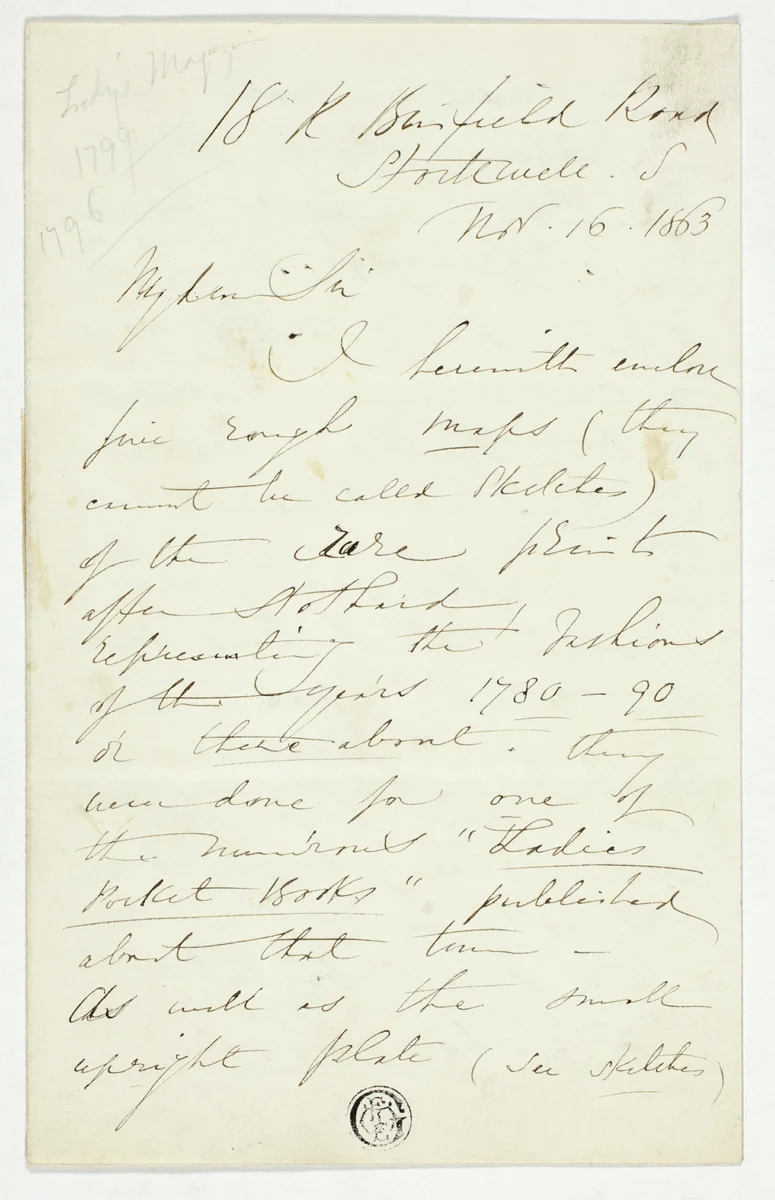 Lady's Magazi
1799
1796
18 R Binfield Road
Stockwell. S
Nov. 16. 1863
My dear Sir
I herewith enclose
five rough maps (they
cannot be called sketches)
of the rare prints
after Stothard,
representing the fashions
of the years 1780 - 90
or there about. they
were done for one of
the numerous "Ladies
Pocket Books" published
about that time -
As well as the small
upright plate (see sketches)